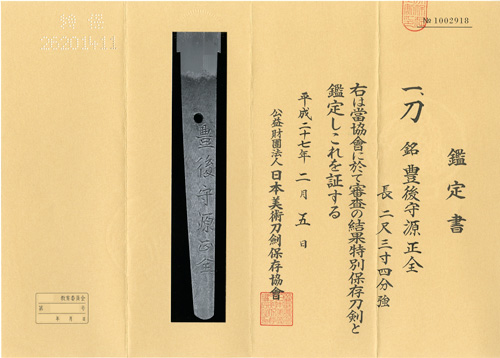 № 1002918
鑑定書
一、刀 銘 豊後守源正全
長 二尺三寸四分強
右は當協會に於て審査の結果特別保存刀剣と
鑑定しこれを証する
平成二十七年二月五日
公益財團法人 日本美術刀剣保存協會
豊後守源正全
262014.11